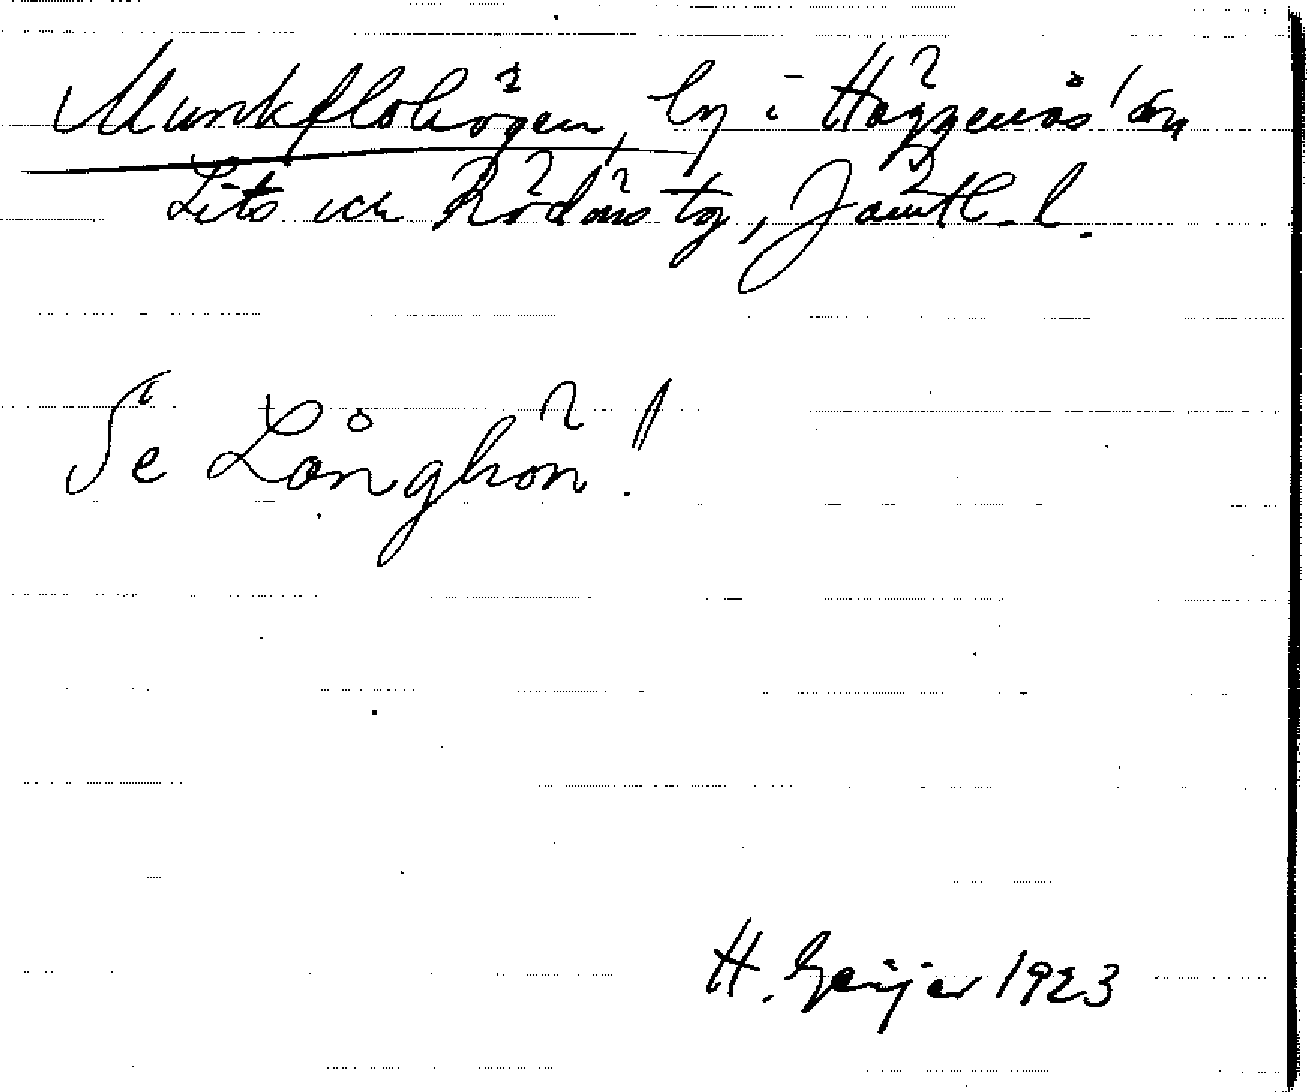 Munkflohögen, by i Häggenås sn
Lits och Rödöns tg, Jämtl. l.
Se Långhön!
H. Geijer 1923